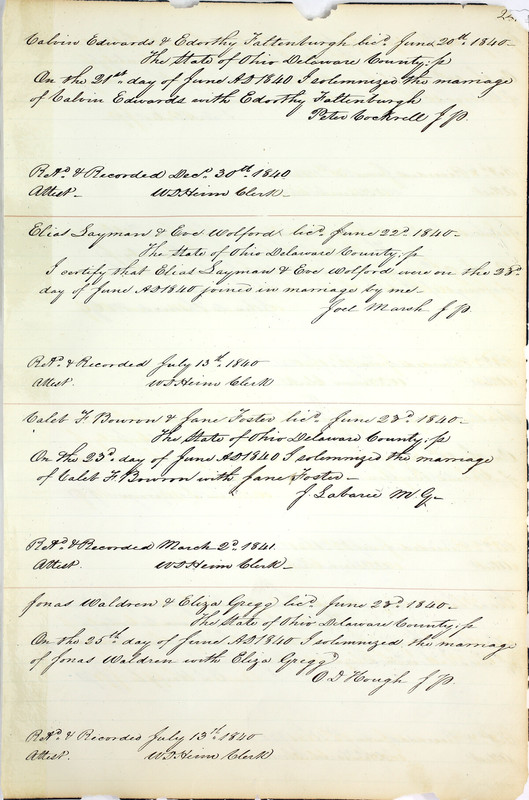 Calvin Edwards & Edorthy Faltenburgh licd. June 20th. 1840-
The State of Ohio Delaware County: ss
On the 21st. day of June AD1840 I solemnized the marriage
of Calvin Edwards with Edorthy Faltenburgh
Peter Cockrell J P.
Retd. & Recorded Decr. 30th. 1840
Attest- W D Heim Clerk-
Elias Layman & Eve Wolford licd. June 22d. 1840-
The State of Ohio Delaware County: ss
I certify that Elias Layman & Eve Wolford were on the 23d.
day of June AD1840 joined in marriage by me-
Joel Marsh J P.
Retd. & Recorded July 13th. 1840
Attest. W D Heim Clerk
Caleb F. Bowron & Jane Foster licd. June 23d. 1840-
The State of Ohio Delaware County: ss
On the 23d. day of June AD1840 I solemnized the marriage
of Caleb F. Bowron with Jane Foster-
J. Labarie M G-
Retd. & Recorded March 2d. 1841.
Attest. W D Heim Clerk-
Jonas Waldren & Eliza Gregg licd. June 23d. 1840-
The State of Ohio Delaware County: ss
On the 25th. day of June AD1840 I solemnized the marriage
of Jonas Waldren with Eliza Gregg
O D Hough J P.
Retd. & Recorded July 13th. 1840
Attest. W D Heim Clerk